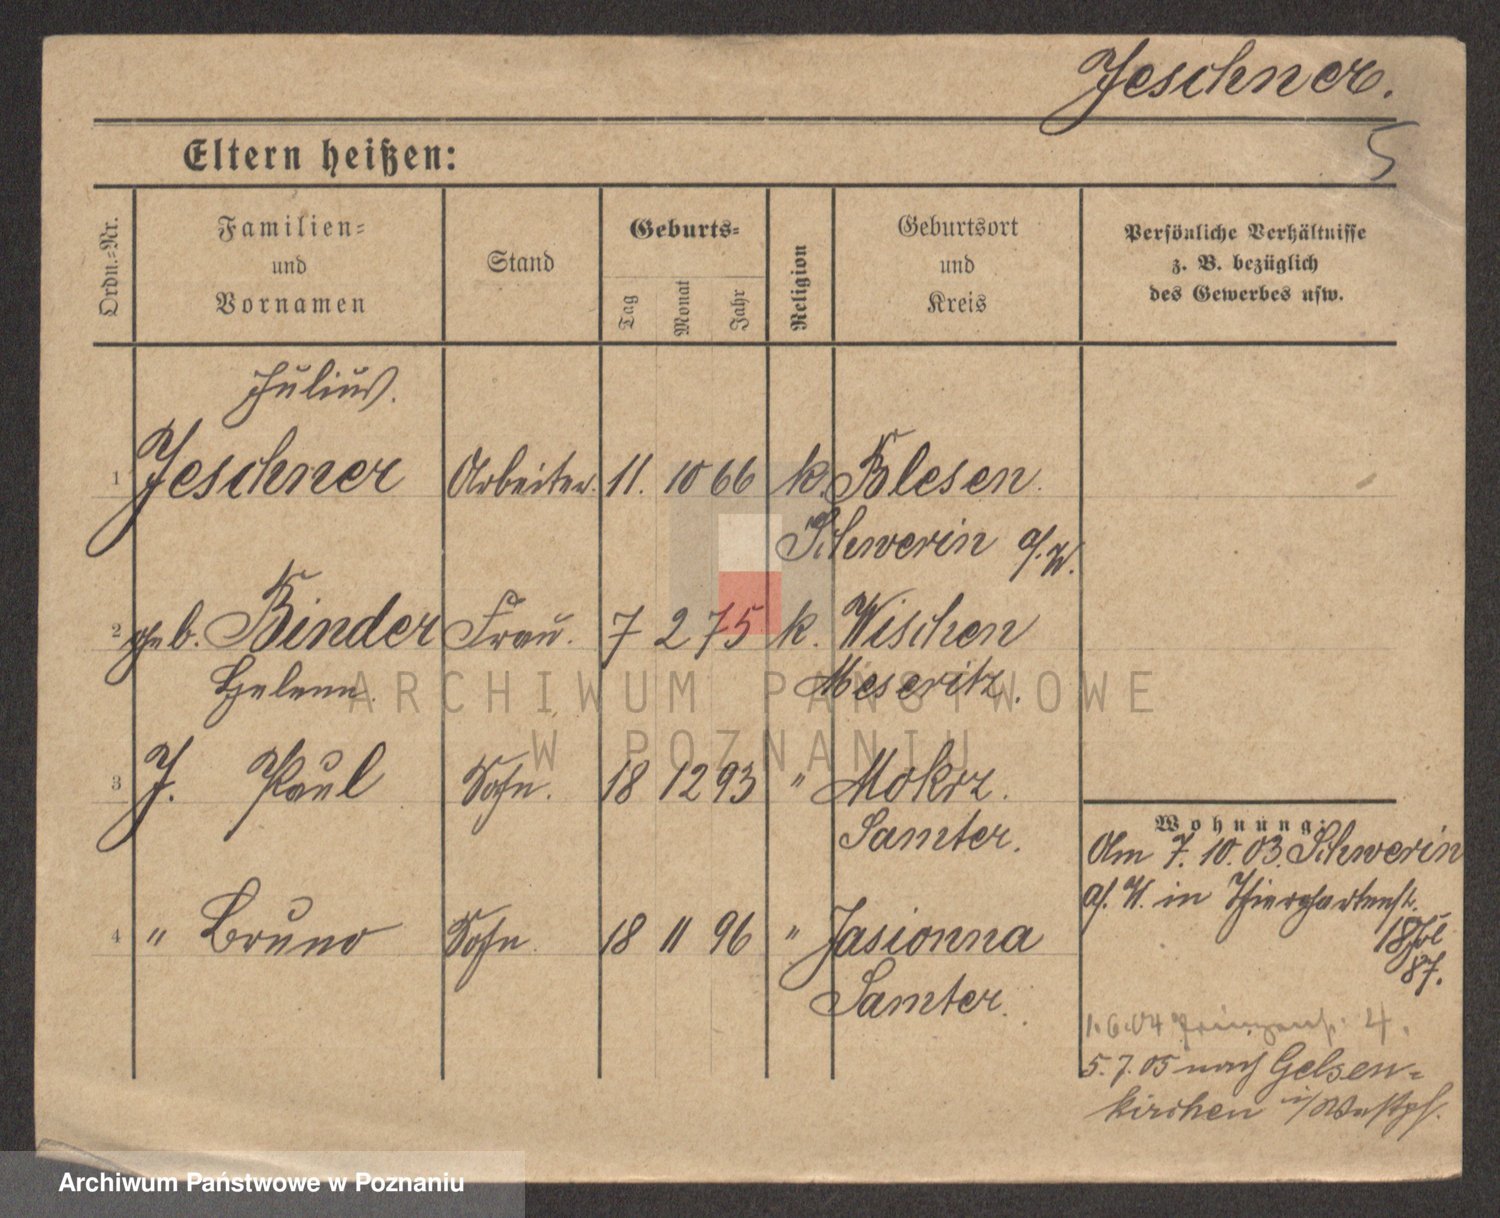 Jeschner.
5
Eltern heißen:
Ordn.-Nr.
Familien-
und
Vornamen
Stand
Geburts-
Tag
Monat
Jahr
Religion
Geburtsort
und
Kreis
Persönliche Verhältnisse
z. B. bezüglich
des Gewerbes usw.
Julius.
1 Jeschner Arbeiter. 11. 10 66 k. Blesen.
Schwerin a/W.
2 geb. Binder Frau. 7 2 75 k. Wischen
Helena. Meseritz.
3 J. Paul Sohn. 18 12 93 " Mokrz.
Samter.
4 " Bruno Sohn. 18 11 96 " Jasionna
Samter.
Wohnung:
Am 7. 10. 03. Schwerin
a/. W. in Thiergartenst.
18
87.
1.6.04 4.
5.7.05 nach Gelsen-
kirchen i/Westph.
ARCHIWUM PAŃSTWOWE
W POZNANIU
Archiwum Państwowe w Poznaniu